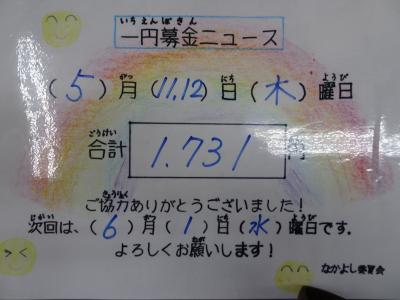 いちえんぼきん
一円募金ニュース
がつ にち ようび
(5)月(11.12)日(木)曜日
ごうけい
合計 1.731 円
きょうりょく
ご協力ありがとうございました!
じかい がつ にち ようび
次回は、(6)月(1)日(水)曜日です。
ねが
よろしくお願いします!
なかよし委員会